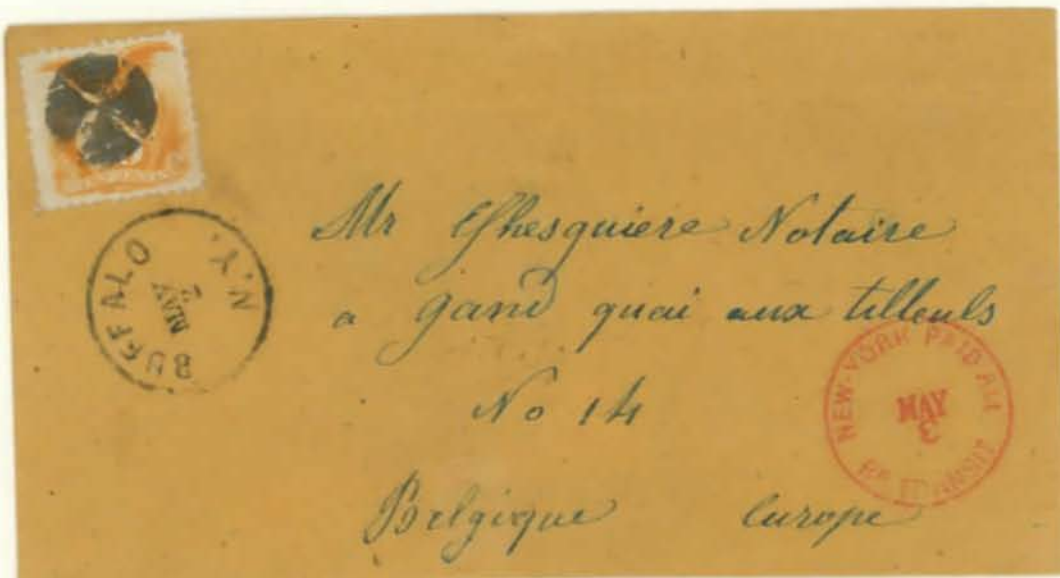 BUFFALO
N.Y.
MAY
2
Mr Ghesquiere Notaire
a gand quai aux tilleuls
No 14
Belgique Europe
NEW-YORK PAID ALL
MAY
Br TRANSIT